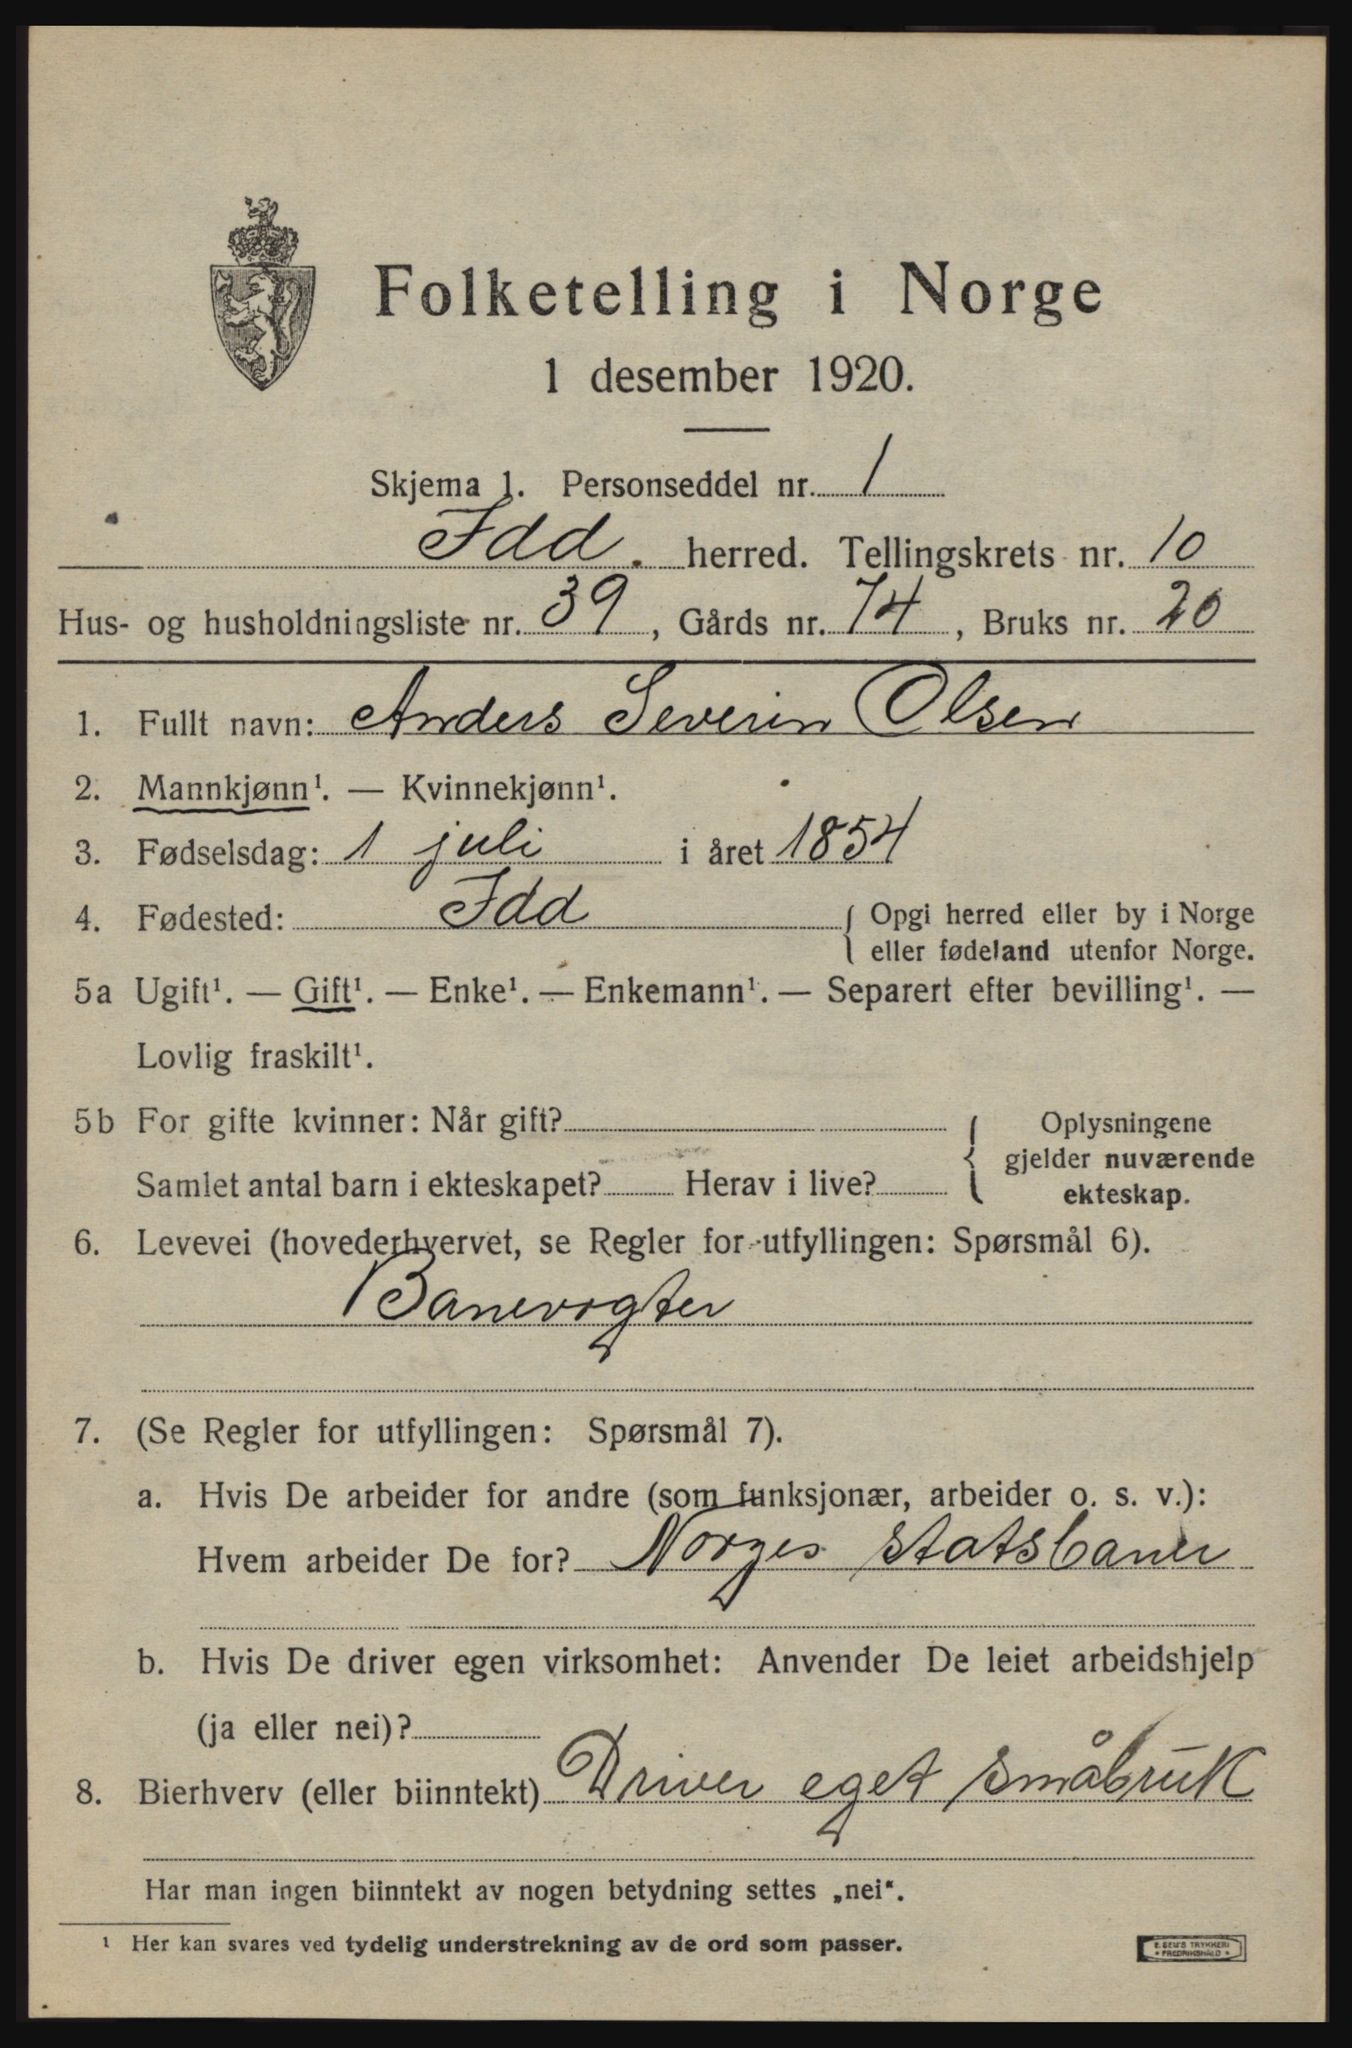 Folketelling i Norge
1 desember 1920.
Skjema 1. Personseddel nr. 1
Idd. herred. Tellingskrets nr. 10
Hus- og husholdningsliste nr. 39, Gårds nr. 74, Bruks nr. 20
1. Fullt navn: Anders Severin Olsen
2. Mannkjønn¹. — Kvinnekjønn¹.
3. Fødselsdag: 1 juli i året 1854
4. Fødested: Idd { Opgi herred eller by i Norge
eller fødeland utenfor Norge.
5a Ugift¹. — Gift¹. — Enke¹. — Enkemann¹. — Separert efter bevilling¹. —
Lovlig fraskilt¹.
5b For gifte kvinner: Når gift? { Oplysningene
gjelder nuværende
Samlet antal barn i ekteskapet? Herav i live? ekteskap.
6. Levevei (hovederhvervet, se Regler for utfyllingen: Spørsmål 6).
Banevogter
7. (Se Regler for utfyllingen: Spørsmål 7).
a. Hvis De arbeider for andre (som funksjonær, arbeider o. s. v.):
Hvem arbeider De for? Norges statsbaner
b. Hvis De driver egen virksomhet: Anvender De leiet arbeidshjelp
(ja eller nei)?
8. Bierhverv (eller biinntekt) Driver eget småbruk
Har man ingen biinntekt av nogen betydning settes „nei“.
¹ Her kan svares ved tydelig understrekning av de ord som passer.
E. SEM'S TRYKKERI
• FREDRIKSHALD •